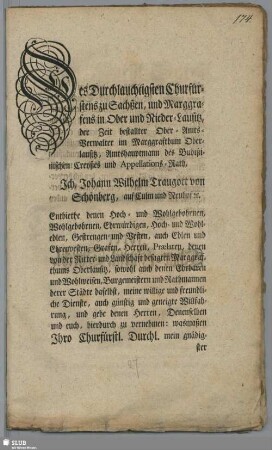 174.
Des Durchlauchtigsten Churfür-
stens zu Sachßen, und Marggra-
fens in Ober und Nieder-Lausitz,
der Zeit bestallter Ober-Amts-
Verwalter im Marggrafthum Ober-
lausitz, Amtshauptmann des Budißi-
nischen Creyßes und Appellations-Rath,
Ich, Johann Wilhelm Traugott von
Schönberg, auf
Entbiethe denen Hoch- und Wohlgebohrnen,
Wohlgebohrnen, Ehrwürdigen, Hoch- und Wohl-
edlen, Gestrengen und Vesten, auch Edlen und
Ehrenvesten, Grafen, Herren, Praelaten, denen
von der Ritter- und Landschaft besagten Marggraf-
thums Oberlausitz, sowohl auch denen Ehrbaren
und Wohlweisen, Burgemeistern und Rathmannen
derer Städte daselbst, meine willige und freundli-
che Dienste, auch günstig und geneigte Willfah-
rung, und gebe denen Herren, Denenselben
und euch, hierdurch zu vernehmen: wasmaßen
Ihro Churfürstl. Durchl. mein gnädig-
ster
SLUB